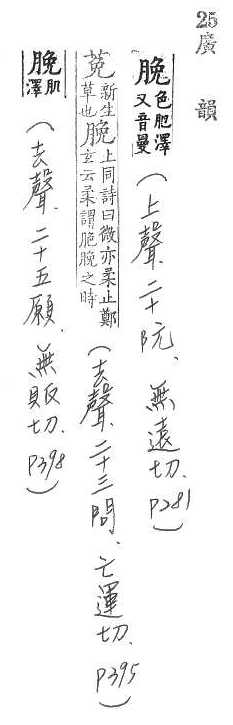 25廣韻
脕色肥澤又音曼（上聲、二十阮、無遠切、P281）
莬新生草也脕上同詩曰薇亦柔止鄭玄云柔謂脆脕之時（去聲、二十三問、亡運切、P395）
脕肌澤（去聲、二十五願、無販切、P398）